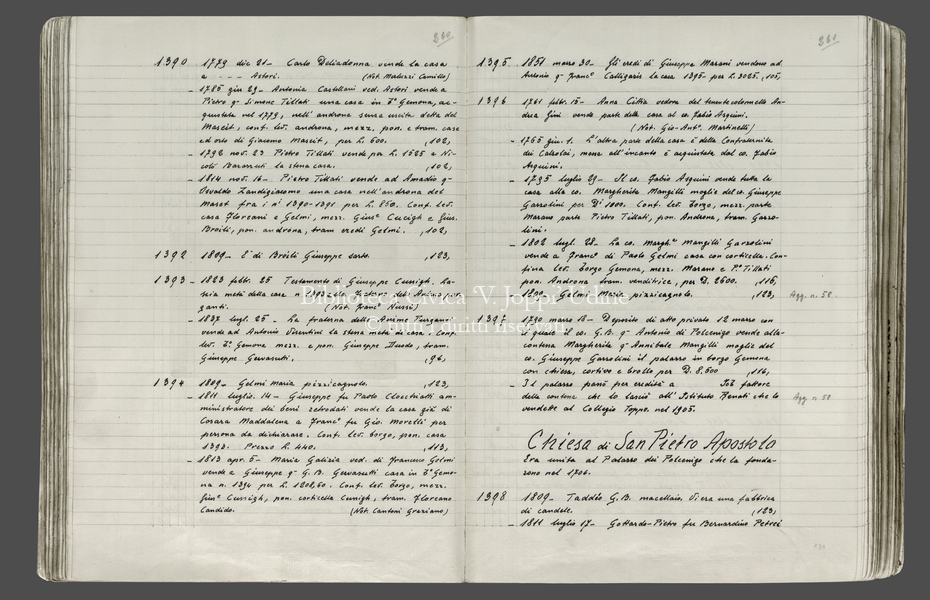 260
1390 1779 dic 21 - Carlo Deliadonna vende la casa
a - - - Astori. (Not. Maluzzi Camillo)
- 1785 giu 29 - Antonia Castellani ved. Astori vende a
Pietro q^m Simone Tillati una casa in B° Gemona, ac-
quistata nel 1779, nell'androna senza uscita detta del
Marcit, conf. lev. androna, mezz. pon. e tram. case
ed orto di Giacomo Marcit, per L. 600. (102,
- 1792 nov. 23 Pietro Tillati vende per L. 1525 a Ni-
colò la stessa casa. (102,
- 1814 nov. 16 - Pietro Tillati vende ad Amadio q^m
Osvaldo Zandigiacomo una casa nell'androna del
Marcit fra i n^i 1390-1391 per L. 850. Conf. lev.
casa Floreani e Gelmi, mezz. Gius^e Cucigh e Gius.
Broili, pon. androna, tram eredi Gelmi. (102,
1392 1809 - È di Broili Giuseppe sarto. (123,
1393 1823 febb. 25 Testamento di Giuseppe Cussigh. La-
scia metà della casa n 1393 alla Fraterna delle Anime pur-
ganti. (Not. Franc^o Nussi)
- 1837 lugl. 25 - La fraterna delle Anime Purgan.
vende ad Antonio Sorentini la stessa metà di casa. Conf.
lev. B° Gemona mezz. e pon. Giuseppe Duodo, tram.
Giuseppe Gervasutti. (96,
1394 1809 - Gelmi Maria pizzicagnola. (123,
- 1811 luglio. 14 - Giuseppe fu Paolo Clocchiatti am-
ministratore dei beni retrodati vende la casa già di
Cosara Maddalena a Franc^o fu Gio. Morelli per
persona da dichiarare. Conf. lev. borgo, pon. casa
1393. Prezzo L. 440. (113,
- 1813 apr. 6 - Maria Galizia ved. di Francesco Gelmi
vende a Giuseppe q^m G. B. Gervasutti casa in B° Gemo-
na n. 1394 per L. 1208,60. Conf. lev. Borgo, mezz.
Gius^e Cussigh, pon. corticella Cussigh, tram. Floreano
Candido. (Not. Cantoni Graziano)
261
1395 1851 marzo 30 - Gli eredi di Giuseppe Marani vendono ad
Antonio q^m Franc^o Calligaris la casa 1395 per L. 3025. (105,
1396 1761 febb. 15 - Anna Cittia vedova del tenente colonnello An-
drea Gini vende parte della casa al co. Fabio Asquini.
(Not. Gio. Ant^o Martinelli)
- 1765 giu. 1. L'altra parte della casa è della Confraternita
dei Calzolai, messa all'incanto è acquistata dal co. Fabio
Asquini.
- 1795 luglio 29 - Il co. Fabio Asquini vende tutta la
casa alla co. Margherita Mangilli moglie del co. Giuseppe
Garzolini per D^i 1000. Conf. lev. borgo, mezz. parte
Marano parte Pietro Tillati, pon. Androna, tram. Garzo-
lini.
- 1802 lugl. 28 - La co. Margh^a Mangilli Garzolini
vende a Franc^o di Paolo Gelmi casa con corticella. Con-
fina lev. Borgo Gemona, mezz. Marano e P^o Tillati
pon. Androna tram. venditrice, per D. 2600. (116,
- 1809 - Gelmi Maria pizzicagnola. (123, Agg. n. 58.
1397 1790 marzo 18 - Deposito di atto privato 12 marzo con
il quale il co. G. B. q^m Antonio di Polcenigo vende alla
contessa Margherita q^m Annibale Mangilli moglie del
co. Giuseppe Garzolini il palazzo in borgo Gemona
con chiesa, cortivo e brollo per D. 8.500 (116,
- Il palazzo passò per eredità a fattore Agg. n. 58
della contessa che lo lasciò all'Istituto Renati che lo
vendette al Collegio Toppo nel 1905.
Chiesa di San Pietro Apostolo
Era unita al Palazzo dei Polcenigo che la fonda-
rono nel 1706.
1398 1809 - Taddio G. B. macellaio. Vi era una fabbrica
di candele. (123)
- 1811 luglio 17 - Gottardo-Pietro fu Bernardino Petrei
Biblioteca Civica 'V. Joppi' Udine
© tutti i diritti riservati